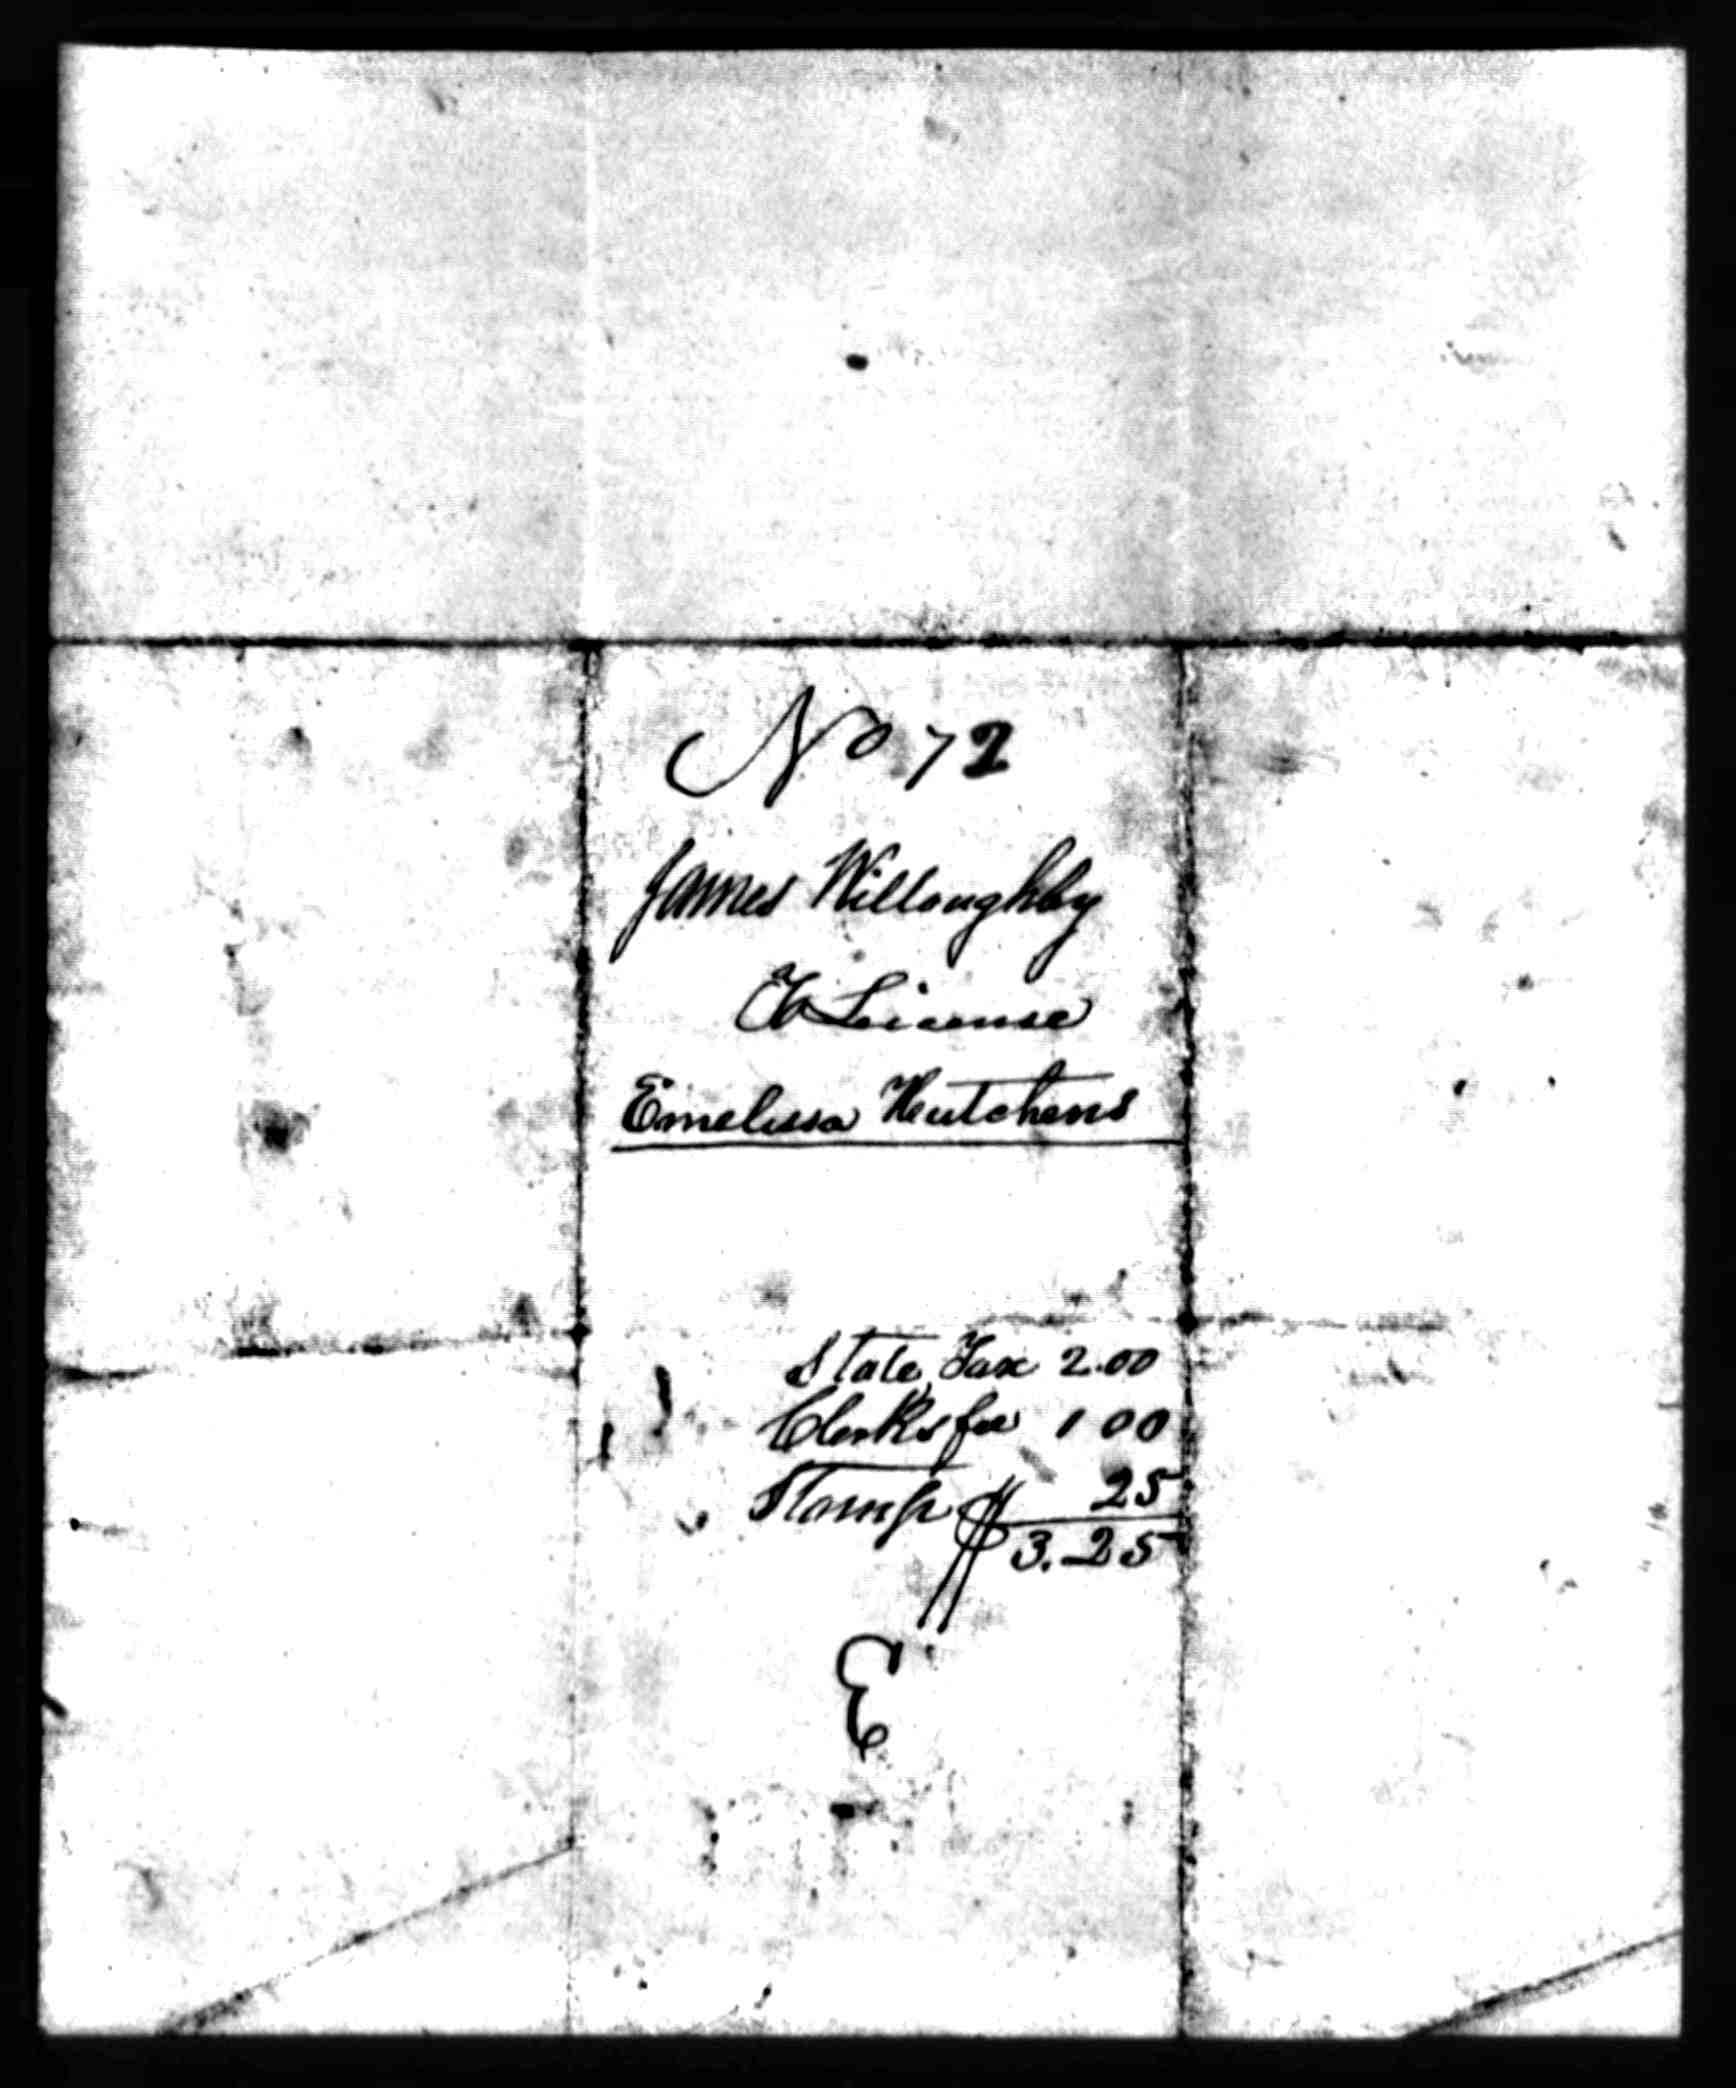 No 72
James Willoughby
To License
Emelissa Hutchens
State Tax 2.00
Clerks fee 1 00
Stamp 25
$3.25
E